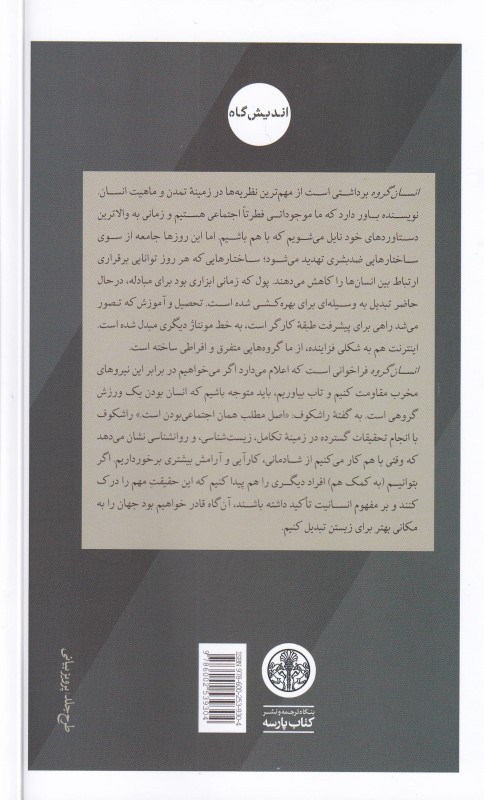 اندیش‌گاه
انسان‌گروه برداشتی است از مهم‌ترین نظریه‌ها در زمینهٔ تمدن و ماهیت انسان.
نویسنده باور دارد که ما موجوداتی فطرتاً اجتماعی هستیم و زمانی به والاترین
دستاوردهای خود نایل می‌شویم که با هم باشیم. اما این روزها جامعه از سوی
ساختارهایی ضدبشری تهدید می‌شود؛ ساختارهایی که هر روز توانایی برقراری
ارتباط بین انسان‌ها را کاهش می‌دهند. پول که زمانی ابزاری بود برای مبادله، درحال
حاضر تبدیل به وسیله‌ای برای بهره‌کشی شده است. تحصیل و آموزش که تصور
می‌شد راهی برای پیشرفت طبقهٔ کارگر است، به خط مونتاژ دیگری مبدل شده است.
اینترنت هم به شکلی فزاینده، از ما گروه‌هایی متفرق و افراطی ساخته است.
انسان‌گروه فراخوانی است که اعلام می‌دارد اگر می‌خواهیم در برابر این نیروهای
مخرب مقاومت کنیم و تاب بیاوریم، باید متوجه باشیم که انسان بودن یک ورزش
گروهی است. به گفتهٔ راشکوف: «اصل مطلب همان اجتماعی‌بودن است.» راشکوف
با انجام تحقیقات گسترده در زمینهٔ تکامل، زیست‌شناسی، و روانشناسی نشان می‌دهد
که وقتی با هم کار می‌کنیم از شادمانی، کارآیی و آرامش بیشتری برخورداریم. اگر
بتوانیم (به کمک هم) افراد دیگری را هم پیدا کنیم که این حقیقتِ مهم را درک
کنند و بر مفهوم انسانیت تأکید داشته باشند، آن‌گاه قادر خواهیم بود جهان را به
مکانی بهتر برای زیستن تبدیل کنیم.
بنگاه ترجمه و نشر
کتاب پارسه
ISBN: 978-600-253-930-4
9 786002 539304
طرح جلد: پرویز بیانی